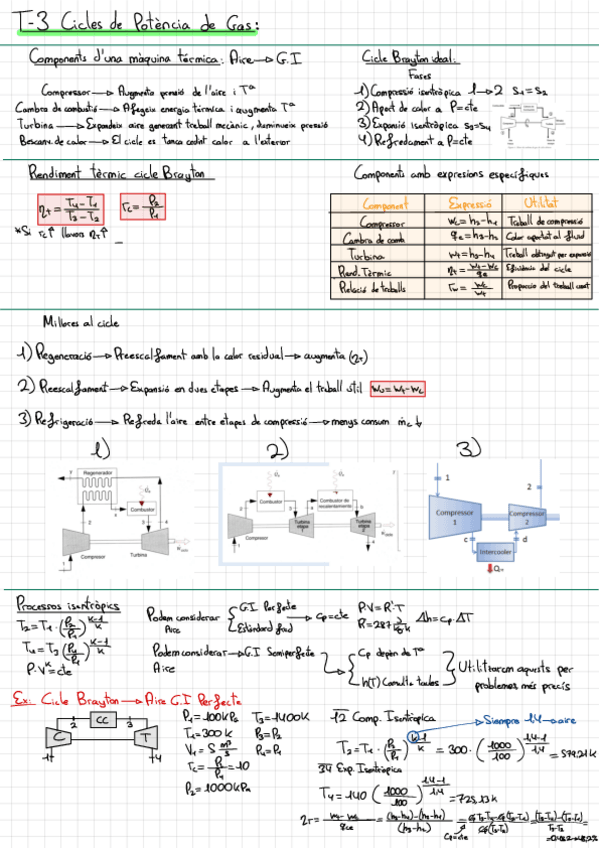 T-3 Cicles de Potència de Gas:
Components d'una màquina tèrmica: Aire → G.I
Compressor → Augmenta pressió de l'aire i Tª
Cambra de combustió → Afegeix energia tèrmica i augmenta Tª
Turbina → Expandeix aire generant treball mecànic, disminueix pressió
Bescanv. de calor → El cicle es tanca cedint calor a l'exterior
Cicle Brayton ideal:
Fases
1) Compressió isentròpica 1→2 S1=S2
2) Aport de calor a P=cte
3) Expansió isentròpica S3=S4
4) Refredament a P=cte
Rendiment tèrmic cicle Brayton
ηt = T4-T1 / T3-T2
rc = P2/P1
*Si rc↑ llavors ηt↑
Components amb expresions específiques
Component Expressió Utilitat
Compressor Wc=h2-h1 Treball de compressió
Cambra de comb qe=h3-h2 Calor aportat al fluid
Turbina Wt=h3-h4 Treball obtingut per expansió
Rend. Tèrmic ηt = Wt-Wc / qe Eficiència del cicle
Relació de treballs rw = Wc/Wt Proporció del treball
Millores al cicle
1) Regeneració → Preescalfament amb la calor residual → augmenta (ηt)
2) Reescalfament → Expansió en dues etapes → Augmenta el traball útil Wu=Wt-Wc
3) Refrigeració → Refreda l'aire entre etapes de compressió → menys consum
1) 2) 3)
Regenerador
Combustor
Compresor
Turbina
Combustor
Combustor de recalentamiento
Compresor
Turbina etapa 1
Turbina etapa 2
1
2
Compressor 1
Compressor 2
c
d
Intercooler
Processos isentròpics
T2=T1·(P2/P1)^(k-1/k)
T4=T3(P4/P3)^(k-1/k)
P·V^k=cte
Podem considerar Aire
G.I. Perfecte
Estàndard fred
→ Cp=cte
P·V=R·T
Δh=cp·ΔT
Podem considerar Aire → G.I Semiperfecte
Cp depèn de Tª
h(T) Consulta taules
Utilitzarem aquests per problemes més precís
Ex: Cicle Brayton → Aire G.I Perfecte
CC
2
3
C
T
1
4
P1=100kPa
T1=300K
rc=P2/P1=10
P2=1000kPa
T3=1400K
P3=P2
P4=P1
12 Comp. Isentròpica
Siempre 1,4 → aire
T2=T1·(P2/P1)^(k-1/k) = 300·(1000/100)^(1,4-1/1,4) = 579,21K
34 Exp. Isentròpica